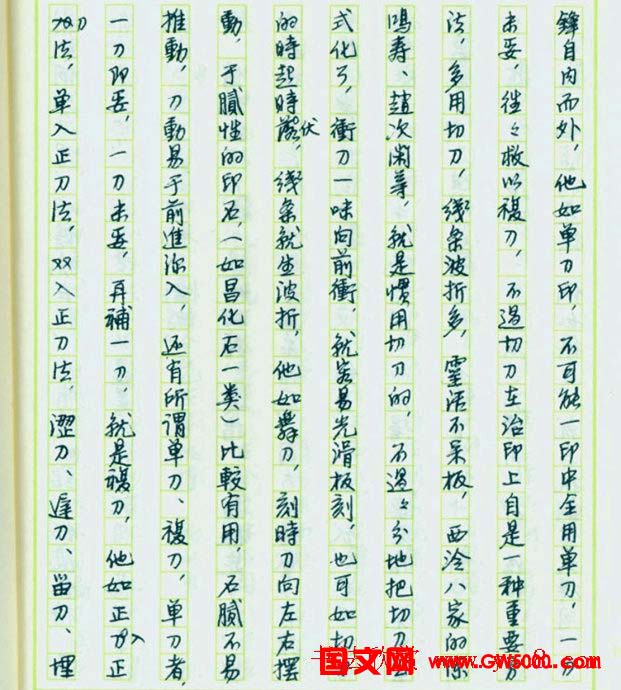 鋒自内而外，他如单刀印，不可能一印中全用单刀，一刀
未妥，往々救以複刀，不過切刀在治印上自是一种重要刀
法，多用切刀，綫条波折多，靈活不呆板，西泠八家的陈
鴻寿、趙次閑等，就是慣用切刀的，不過々分地把切刀
式化了，衝刀一味向前衝，就容易光滑板刻，也可如切刀
的時起時伏，綫条就生波折，他如舞刀，刻時刀向左右摆
動，于膩性的印石，（如昌化石一类）比較有用，石膩不易
推動，刀動易于前進深入，还有所謂单刀、複刀，单刀者，
一刀即妥，一刀未妥，再補一刀，就是複刀，他如正入正
刀法，单入正刀法，双入正刀法，澀刀、遲刀、留刀、埋
国文网 www.GW5000.COM